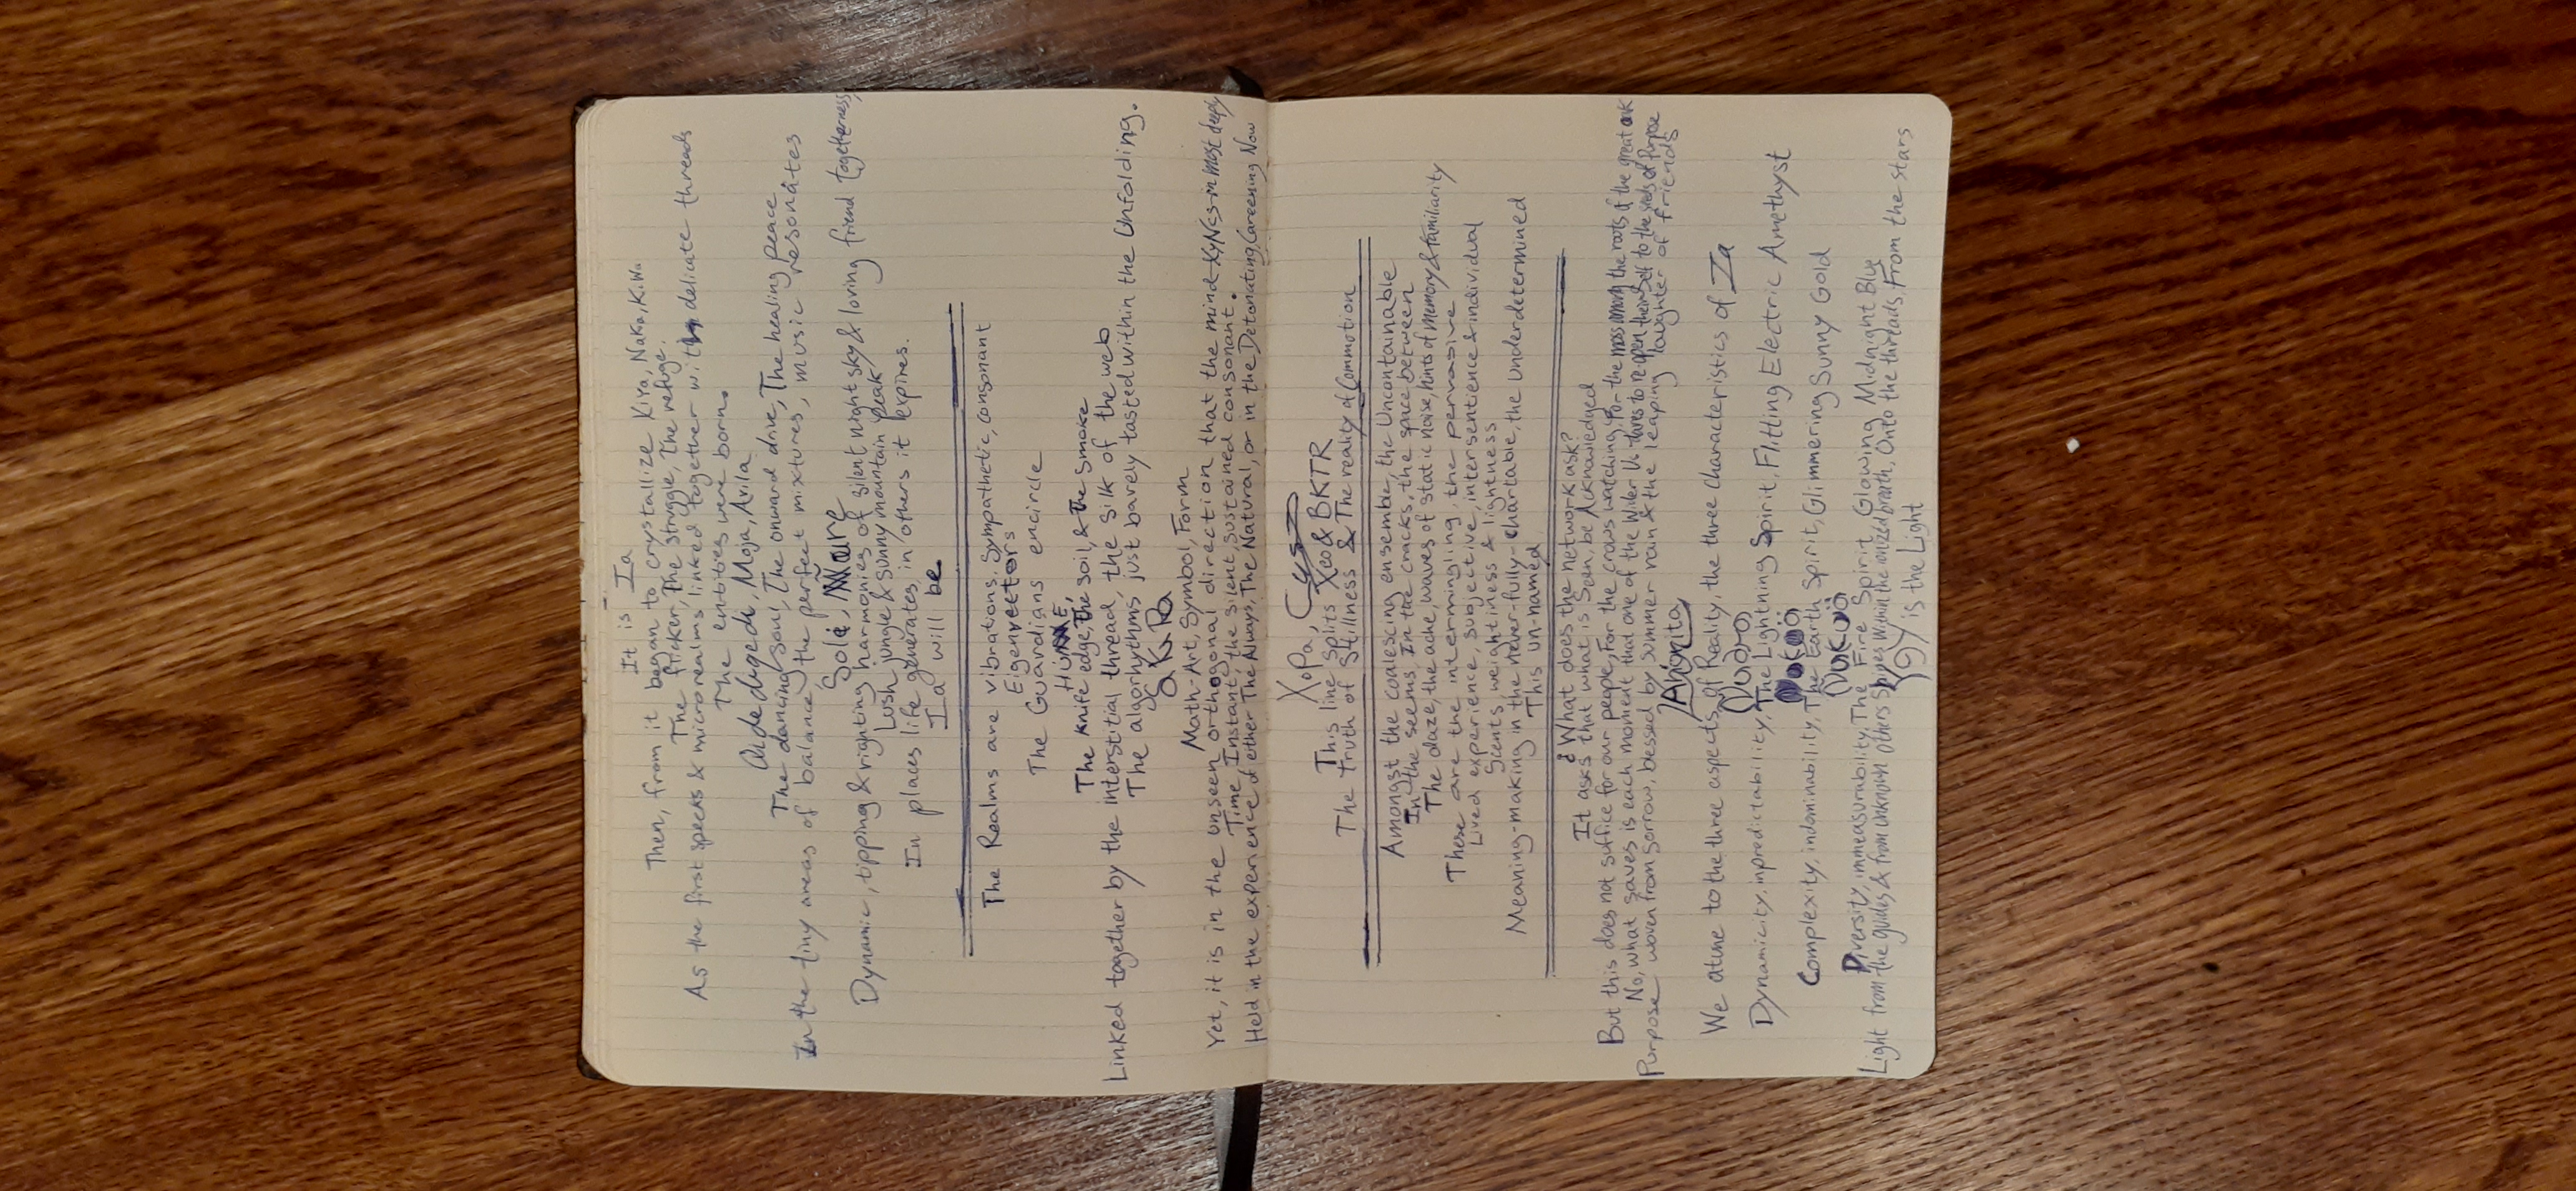 It is Ia
Then, from it began to crystallize KiYa, NaKa, KiWa
The flicker, The struggle, The refuge.
As the first specks & microrealms linked together with delicate threads
The entities were born.
Moja, Avila
The dancing soul, The onward drive, The healing peace
In the tiny areas of balance, the perfect mixtures, music resonates
Dynamic, tipping & righting harmonies of silent night sky & loving friend togetherness,
Lush jungle & sunny mountain peak
In places life generates, in others it expires.
Ia will be.
The Realms are vibrations, sympathetic, consonant
Eigenvectors
The Guardians encircle
The knife edge, The soil, & The smoke
Linked together by the interstitial thread, the silk of the web
The algorhythms just barely tasted within the Unfolding.
Math-Art, Symbol, Form
Yet, it is in the unseen orthogonal direction that the mind XyNcs in most deeply
Time, Instant, the silent, sustained consonant.
Held in the experience of either The Always, The Natural, or in the Detonating, Careening Now
XoPa,
This line splits Xeo & BKTR
The Truth of Stillness & The reality of Commotion
Amongst the coalescing ensemble, the Uncontainable
In the seems, In the cracks, the space between
The daze, the ache, waves of static noise, hints of memory & familiarity
These are the intermingling, the pervasive
Lived experience, subjective, intersentience & individual
Scents, weightiness & lightness
Meaning-making in the never-fully-chartable, the underdetermined
This un-named
¿What does the network ask?
It asks that what is Seen, be Acknowledged
But this does not suffice for our people, For the crows watching, For the moss among the roots of the great oak
No, what saves is each moment that one of the Wider Us dares to re-open theirself to the seeds of Purpose
Purpose woven from sorrow, blessed by summer rain & the leaping laughter of friends
Ahorita
We atune to the three aspects of Reality, the three characteristics of Ia
Dynamicity, inpredictability, The Lightning Spirit, Flitting Electric Amethyst
Complexity, indominability, The Earth Spirit, Glimmering Sunny Gold
Diversity, immeasurability, The Fire Spirit, Glowing Midnight Blue
Light from the guides & from unknown others Shines within the ionized breath, Onto the threads, From the stars
is the Light